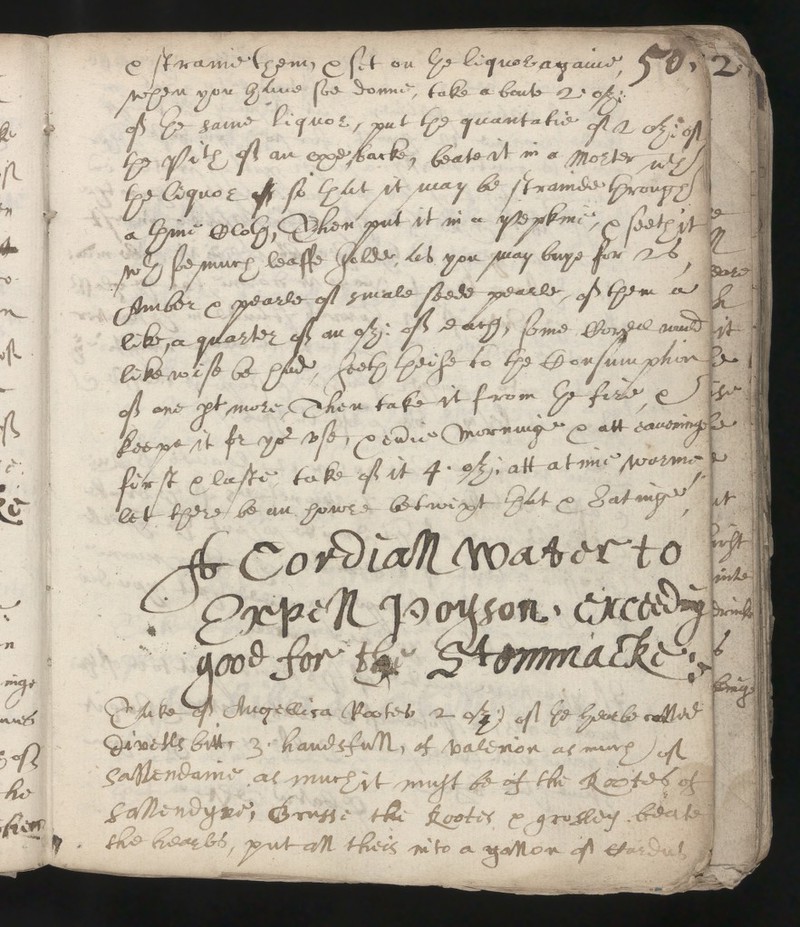 & straine them, & set on the liquor againe, 50, 2
when you have soe donne, take a boute 2 oz:
of the same liquor, put the quantatie of 2 oz: of
the Pith of an oxe backe, beate it in a Morter wth
the liquor so that it may be strainde through
a thine Cloth, Then put it in a pipkine, & seeth it
wth soe much leaffe golde, as you may buye for 2s,
Amber & pearle of smale seede pearle, of them a
like, a quarter of an oz: of each, some Corall must
likewise be had, seeth theise to the Consumption
of one pt more, Then take it from the fire, &
keepe it for yor vse, & evrie Morninge & att eaveninge
first & laste, take of it 4. oz: att a time warme
let there be an howre betwixt that & Eatinge,
A Cordiall Water to
Expell Poyson, exceeding
good for the Stommacke:
Take of Angellica Rootes 2 oz; of the hearbe called
Divells bitt 3. handsfull, of valerion as much, of
Sallendaine as much it must be of the Rootes of
Sallendyne, Brusse the Rootes & grossley beate
the hearbs, put all theis into a gallon of Cardus